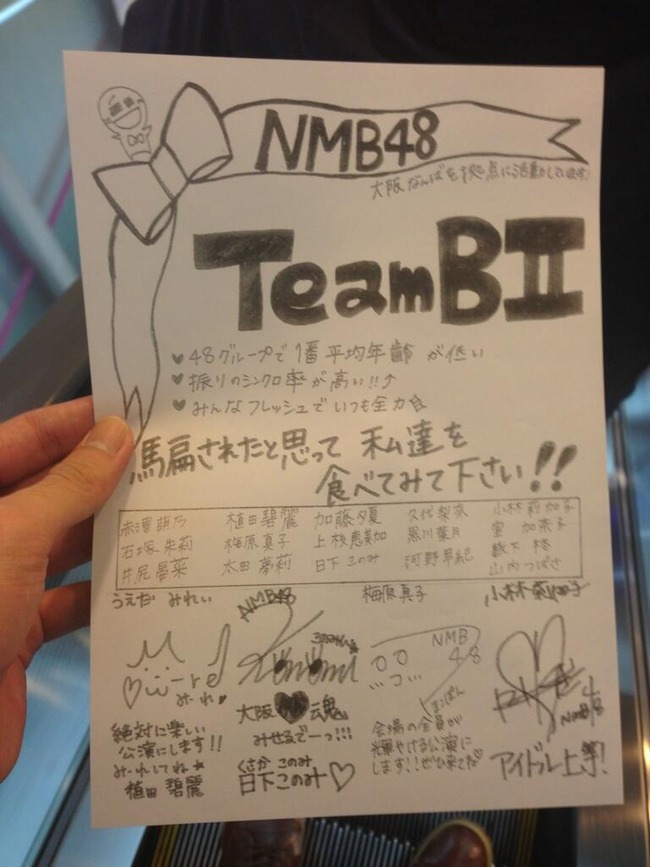 NMB48
大阪なんばを拠点に活動しています!
Team BⅡ
♥48グループで1番平均年齢が低い
♥振りのシンクロ率が高い!!↑
♥みんなフレッシュでいつも全力☆
馬扁されたと思って私達を
食べてみて下さい!!
赤澤萌乃 植田碧麗 加藤夕夏 久代梨奈 小林莉加子
石塚朱莉 梅原真子 上枝恵美加 黒川葉月 室加奈子
井尻晏菜 太田夢莉 日下このみ 河野早紀 薮下柊
山内つばさ
うえだ みれい
NMB48
梅原真子
小林莉加子
み〜れ♥
NMB
48
まこぽん
NMB48
絶対に楽しい
公演にします!!
み〜れしてね☆
植田碧麗
大阪♥魂
みせるでーっ!!!
くさか このみ
日下このみ♡
会場の全員が
輝やける公演に
します!!ぜひ来てね♡
アイドル上等!